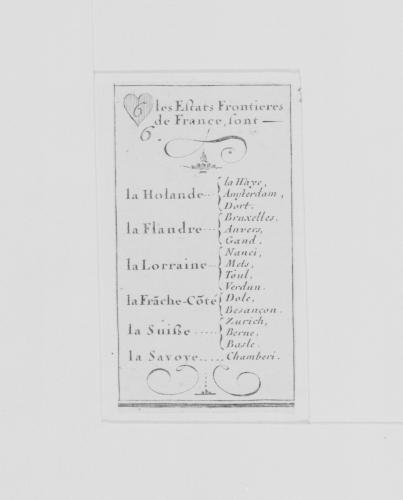 6 les Estats Frontieres
6. de France, sont —
la Holande { la Haye,
Amsterdam,
Dort.
la Flandre { Bruxelles,
Anvers,
Gand.
la Lorraine { Nanci,
Mets,
Toul.
Verdun.
la Frāche-Cōté { Dole,
Besançon.
la Suiße { Zurich,
Berne.
Basle.
la Savoye..... Chamberi.